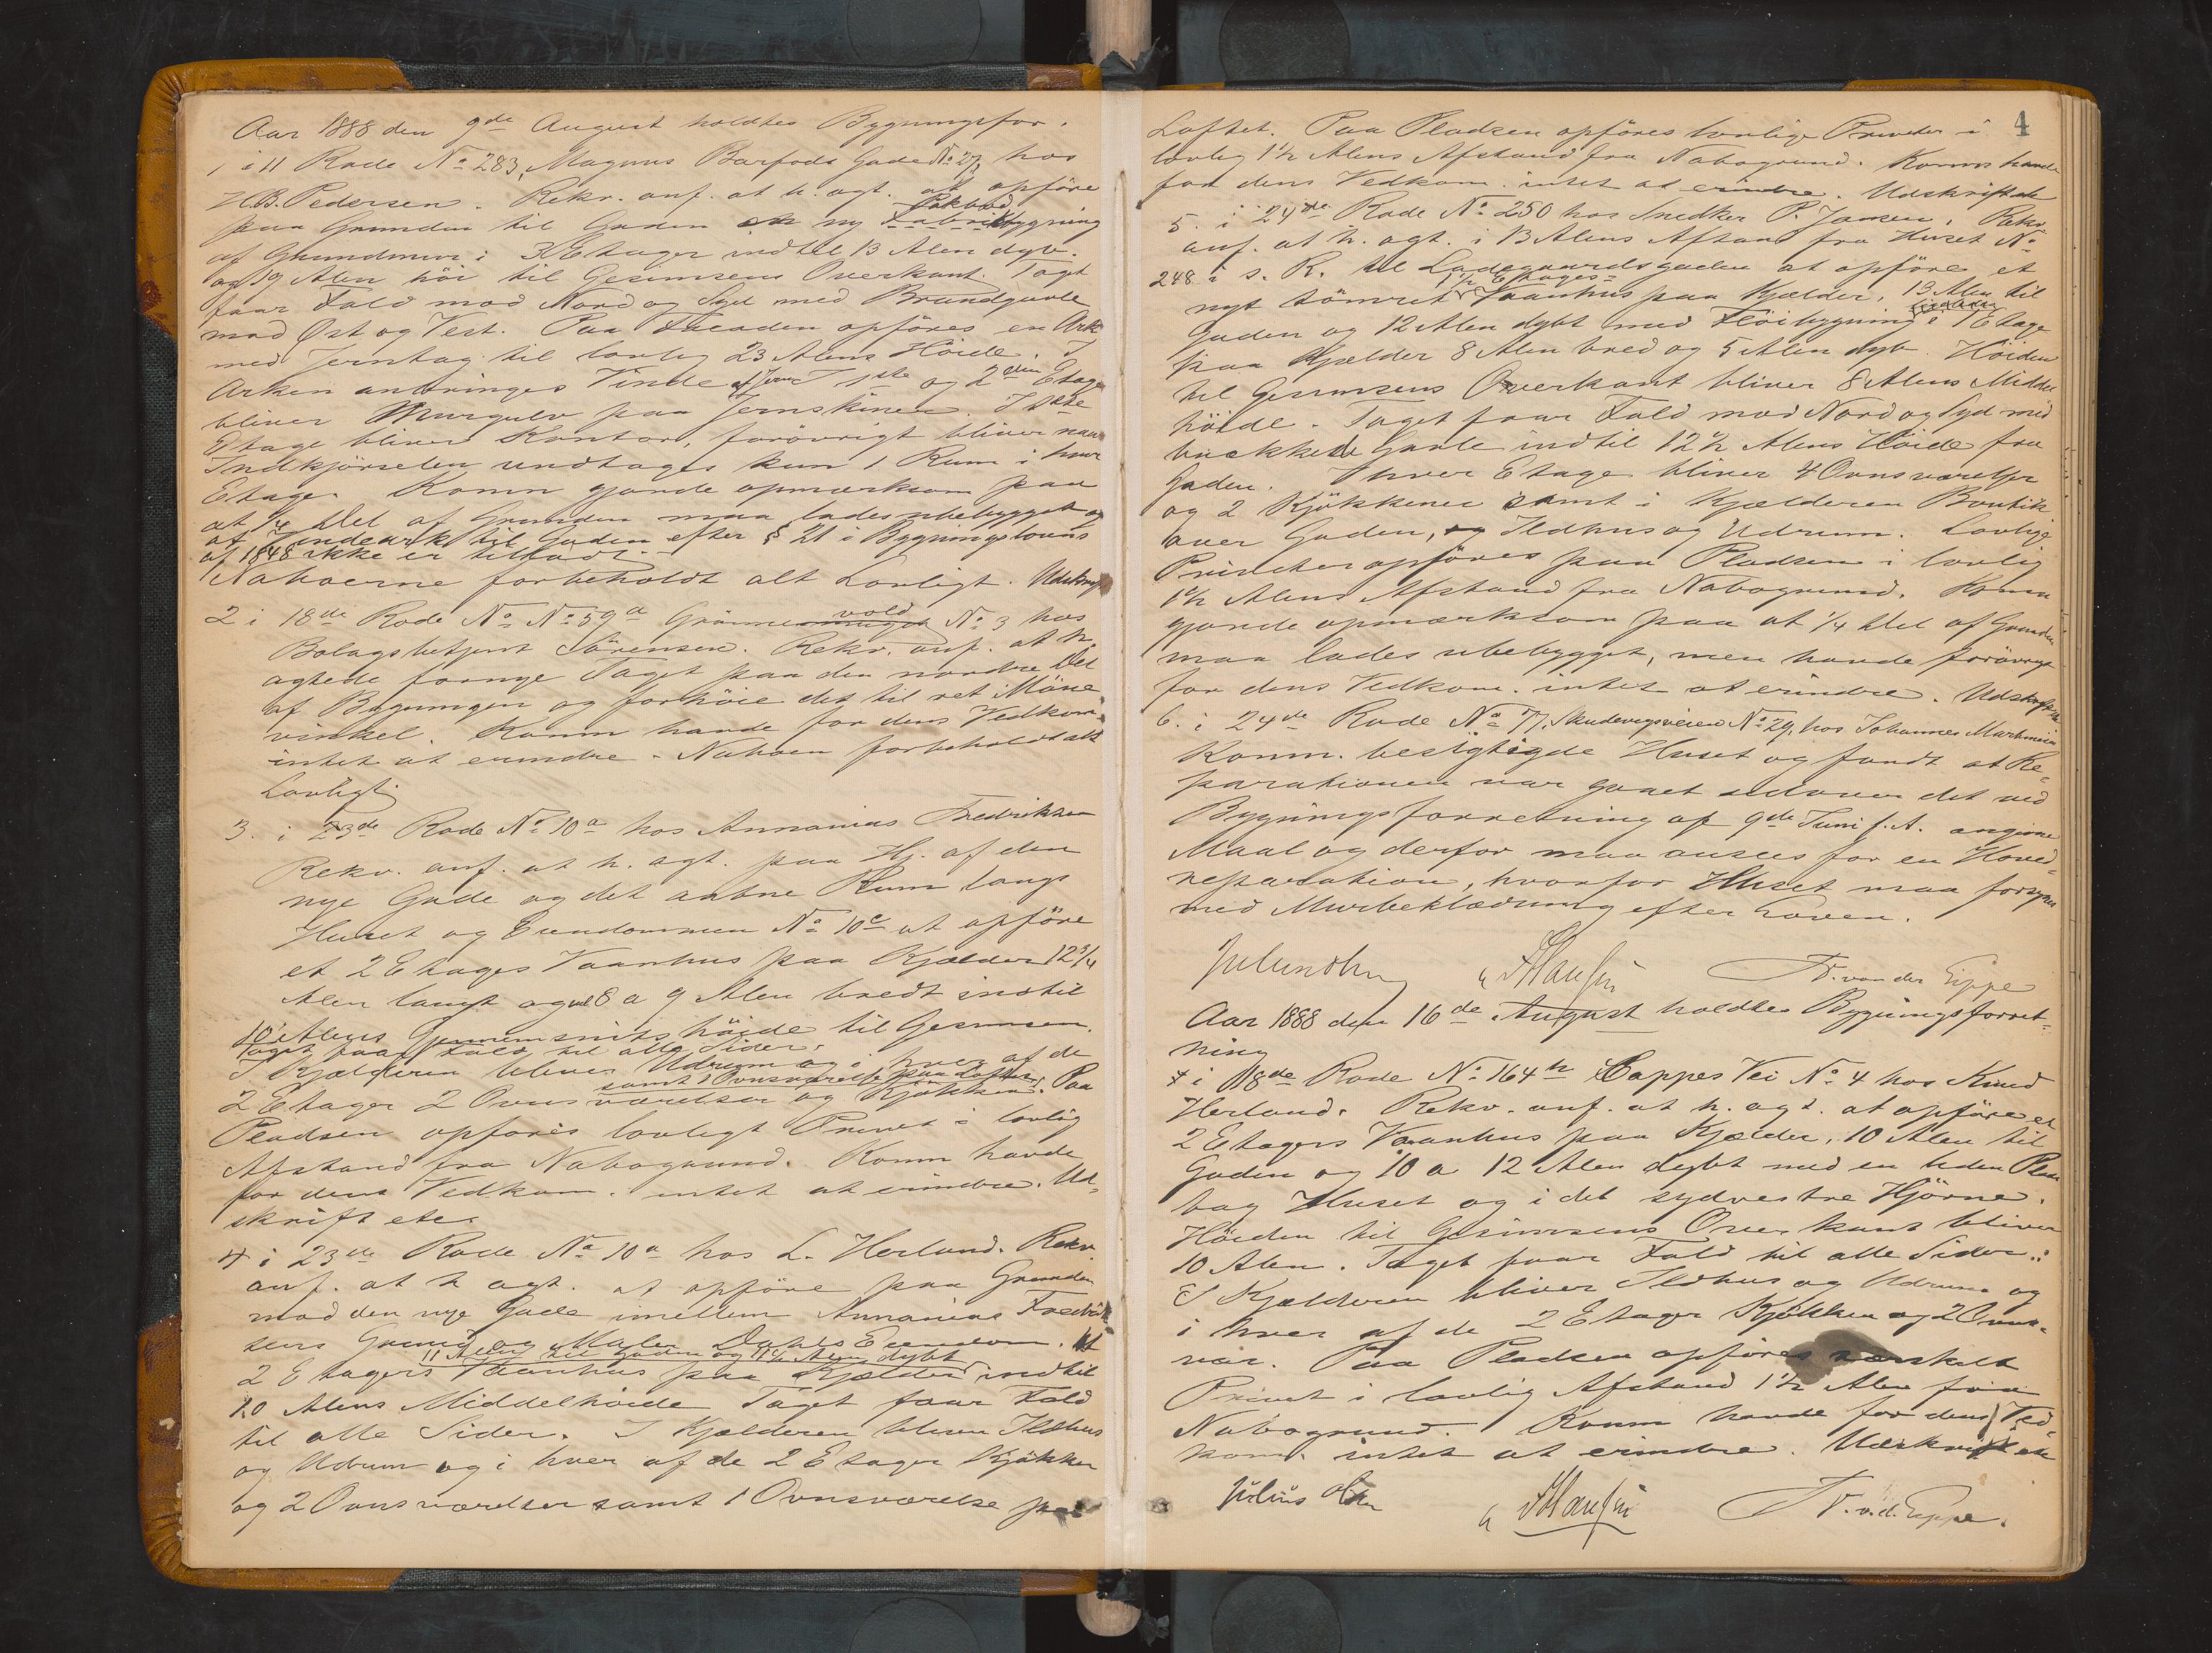 Aar 1888 den 9de August holdtes Bygningsfor.
1 i 11 Rode No 283, Magnus Barfods Gade No 27, hos
H.B. Pedersen. Rekv. anf. at h. agt. at opføre
Pakbod
paa Grunden til Gaden en ny Fabrikbygning
af Grundmur i 3 Etager indtil 13 Alen dyb
og 19 Alen höi til Gesimsens Overkant. Taget
faar Fald mod Nord og Syd med Brandgavle
mod Øst og Vest. Paa Facaden opføres en Ark
med Jerntag til lovlig 23 Alens Höide. I
Arken anbringes Vinde af Jern I 1ste og 2den Etage
bliver Murgulv paa Jernskinner. I 1ste
Etage bliver Kontor, forövrigt bliver naar
Indkjörselen undtages kun 1 Rum i hver
Etage. Komm gjorde opmærksom paa
at 1/4 Del af Grunden maa lades ubebygget og
at Vindeark til Gaden efter § 21 i Bygningslovens
af 1848 ikke er tilladt.
Naboerne forbeholdt alt Lovligt. Udskrift
2 i 18de Rode No No 59a Grönnevold No 3 hos
Bolagsbetjent Sörensen. Rekv. anf. at h.
agtede fornye Taget paa den nordre Del
af Bygningen og forhöie det til ret Möne
vinkel. Komm havde for dens Vedkom.
intet at erindre. Naboen forbeholdt alt
Lovligt.
3. i 23de Rode No 10a hos Annanias Fredriksen
Rekv. anf. at h. agt. paa Hj. af den
nye Gade og det aabne Rum langs
Huset og Eiendommen No 10c at opföre
et 2 Etages Vaanhus paa Kjælder 12 3/4
Alen langt og 8 a 9 Alen bredt indtil
10 Alens Gjennemsnits höide til Gesimsen.
Taget faar Fald til alle Sider.
I Kjælderen bliver Udrum og i hver af de
samt 1 Ovnsværelse paa Loftet
2 Etager 2 Ovnsværelser og Kjökken. Paa
Pladsen opföres lovligt Privet i lovlig
Afstand fra Nabogrund. Komm havde
for dens Vedkom. intet at erindre. Ud-
skrift etc.
4 i 23de Rode No 10a hos L. Herland. Rekv.
anf. at h agt. at opföre paa Grunden
mod den nye Gade imellem Annanias Fredrik
sens Grund og Maler Dahls Eiendom. Et
11 Alen til Gaden og 11 1/2 Alen dybt
2 Etagers Vaanhus paa Kjælder indtil
10 Alens Middelhöide Taget faar Fald
til alle Sider. I Kjælderen bliver Ildhus
og Udrum og i hver af de 2 Etager Kjökken
og 2 Ovnsværelser samt 1 Ovnsværelse paa
4
Loftet. Paa Pladsen opföres lovlige Priveter i
lovlig 1 1/2 Alens Afstand fra Nabogrund. Komm havde
for dens Vedkom. intet at erindre. Udskrift etc
5. i 24de Rode No 250 hos Snedker P. Jansen. Rekv.
anf. at h. agt. i 13 Alens Afstand fra Huset No
248 i s. R. til Ladegaardsgaden at opföre et
1 1/2 Etages
nyt tömret Vaanhus paa Kjælder, 13 Alen til
Gaden og 12 Alen dybt med Flöibygning i 1 Etage
paa Kjælder 8 Alen bred og 5 Alen dyb. Höiden
til Gesimsens Overkant bliver 8 Alens Middel
höide. Taget faar Fald mod Nord og Syd med
brækkede Gavle indtil 12 1/2 Alens Höide fra
Gaden. I hver Etage bliver 4 Ovnsværelser
og 2 Kjökkener samt i Kjælderen Boutik
over Gaden, og Ildhus og Udrum. Lovlige
Priveter opföres paa Pladsen i lovlig
1 1/2 Alens Afstand fra Nabogrund. Komm
gjorde opmærksom paa at 1/4 Del af Grunden
maa lades ubebygget, men havde forövrigt
for dens Vedkom. intet at erindre. Udskrift
6. i 24de Rode No 17, Skudevigsveien No 24, hos Johannes
Komm. besigtigede Huset og fandt at Re-
parationen var gaaet udover det ved
Bygningsforretning af 9de Juni f. A. angivne
Maal og derfor maa ansees for en Hoved-
reparation, hvorfor Huset maa forsynes
med Murbeklædning efter Loven.
Julius Olsen a Hansen Fr. von der Lippe
Aar 1888 den 16de August holdtes Bygningsforret-
ning
i 18de Rode No 164h Cappes Vei No 4 hos Knud
Herland. Rekv. anf. at h. agt. at opföre et
2 Etagers Vaanhus paa Kjælder, 10 Alen til
Gaden og 10 a 12 Alen dybt med en liden Plads
bag Huset og i det sydvestre Hjörne.
Höiden til Gesimsens Overkant bliver
10 Alen. Taget faar Fald til alle Sider.
I Kjælderen bliver Ildhus og Udrum og
i hver af de 2 Etager Kjökken og 2 Ovns-
vær. Paa Pladsen opföres særskilt
Privet i lovlig Afstand 1 1/2 Alen fra
Nabogrund. Komm havde for dens Ved-
kom. intet at erindre. Udskrift etc
Julius Olsen a Hansen Fr. v. d. Lippe.